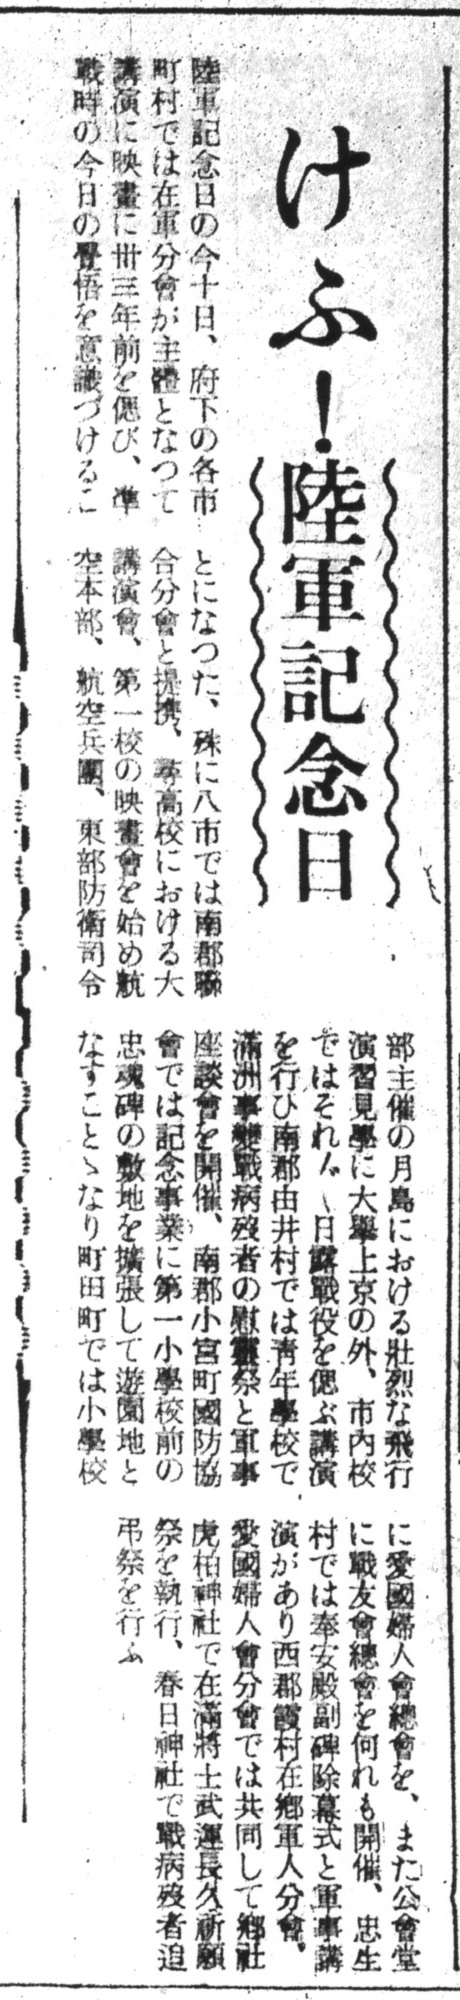 けふ！陸軍記念日
陸軍記念日の今十日、府下の各市
町村では在軍分會が主體となつて
講演に映畫に卅三年前を偲び、準
戰時の今日の覺悟を意識づけるこ
とになつた、殊に八市では南郡聯
合分會と提携、尋高校における大
講演會、第一校の映畫會を始め航
空本部、航空兵團、東部防衛司令
部主催の月島における壯烈な飛行
演習見學に大擧上京の外、市內校
ではそれ〲日露戰役を偲ぶ講演
を行ひ南郡由井村では靑年學校で
滿洲事變戰病歿者の慰靈祭と軍事
座談會を開催、南郡小宮町國防協
會では記念事業に第一小學校前の
忠魂碑の敷地を擴張して遊園地と
なすことゝなり町田町では小學校
に愛國婦人會總會を、また公會堂
に戰友會總會を何れも開催、忠生
村では奉安殿副碑除幕式と軍事講
演があり西郡霞村在鄕軍人分會、
愛國婦人會分會では共同して鄕社
虎柏神社で在滿將士武運長久祈願
祭を執行、春日神社で戰病歿者追
弔祭を行ふ